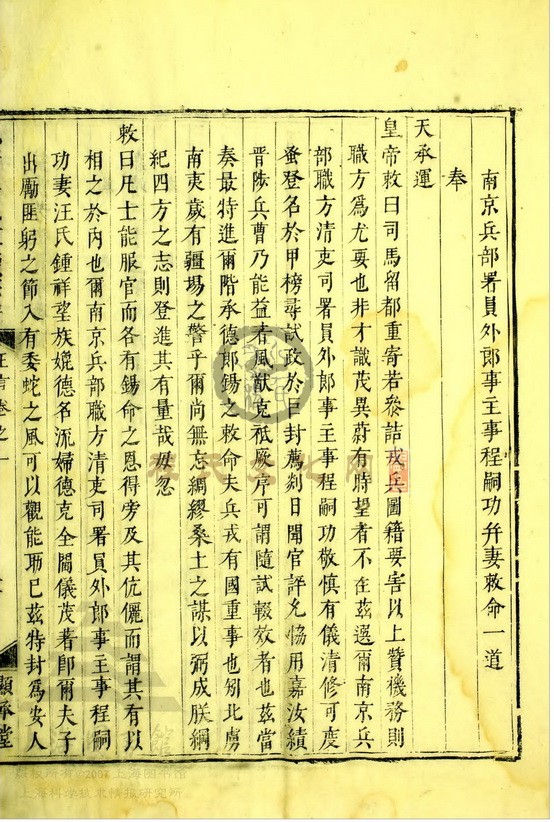 南京兵部署員外郎事主事程嗣功并妻敕命一道
奉
天承運
皇帝敕曰司馬留都重寄若參詰戎兵圖籍要害以上贊機務則
職方爲尤要也非才識茂異蔚有時望者不在茲選爾南京兵
部職方清吏司署員外郎事主事程嗣功敬慎有儀清修可度
蚤登名於甲榜尋試政於封薦剡日聞官評允協用嘉汝績
晉陟兵曹乃能益著風猷克祗厥序可謂隨試輒效者也茲當
奏最特進爾階承德郎錫之敕命夫兵戎有國重事也矧北虜
南夷歲有疆埸之警乎爾尚無忘綢繆桑土之謀以弼成朕綱
紀四方之志則登進其有量哉毋忽
敕曰凡士能服官而各有錫命之恩得旁及其伉儷而謂其有以
相之於內也爾南京兵部職方清吏司署員外郎事主事程嗣
功妻汪氏鍾祥望族娩德名流婦德克全閫儀茂著即爾夫子
出勵匪躬之節入有委蛇之風可以觀能助巳茲特封爲安人
卷之一
顯承堂
版权所有 2007 上海图书馆
上海科学技术情报研究所